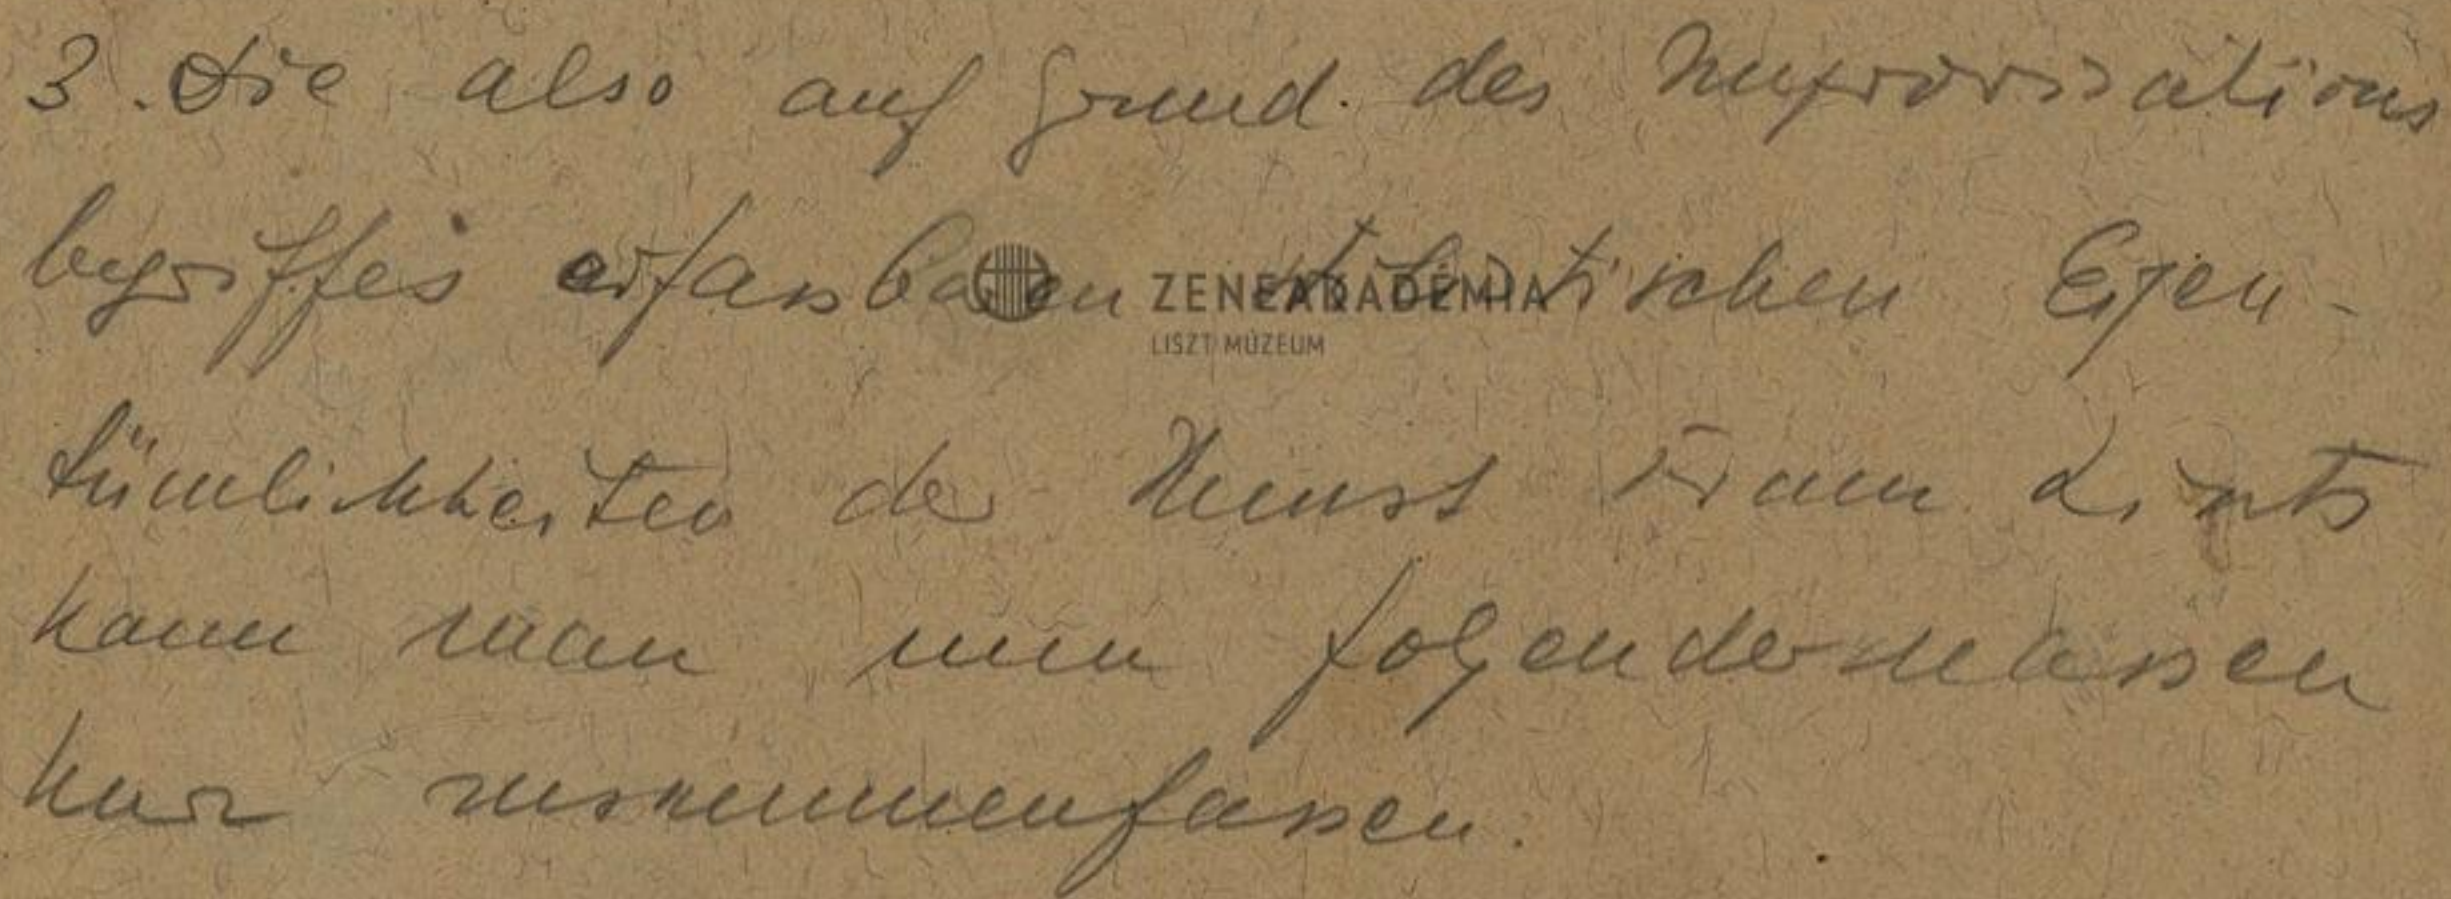 3. Die also auf Grund des Improvisations
begriffes erfassbaren ästhetischen Eigen-
tümlichkeiten der Kunst Franz Liszts
kann man nun folgendermassen
kurz zusammenfassen.
ZENEAKADÉMIA
LISZT MÚZEUM